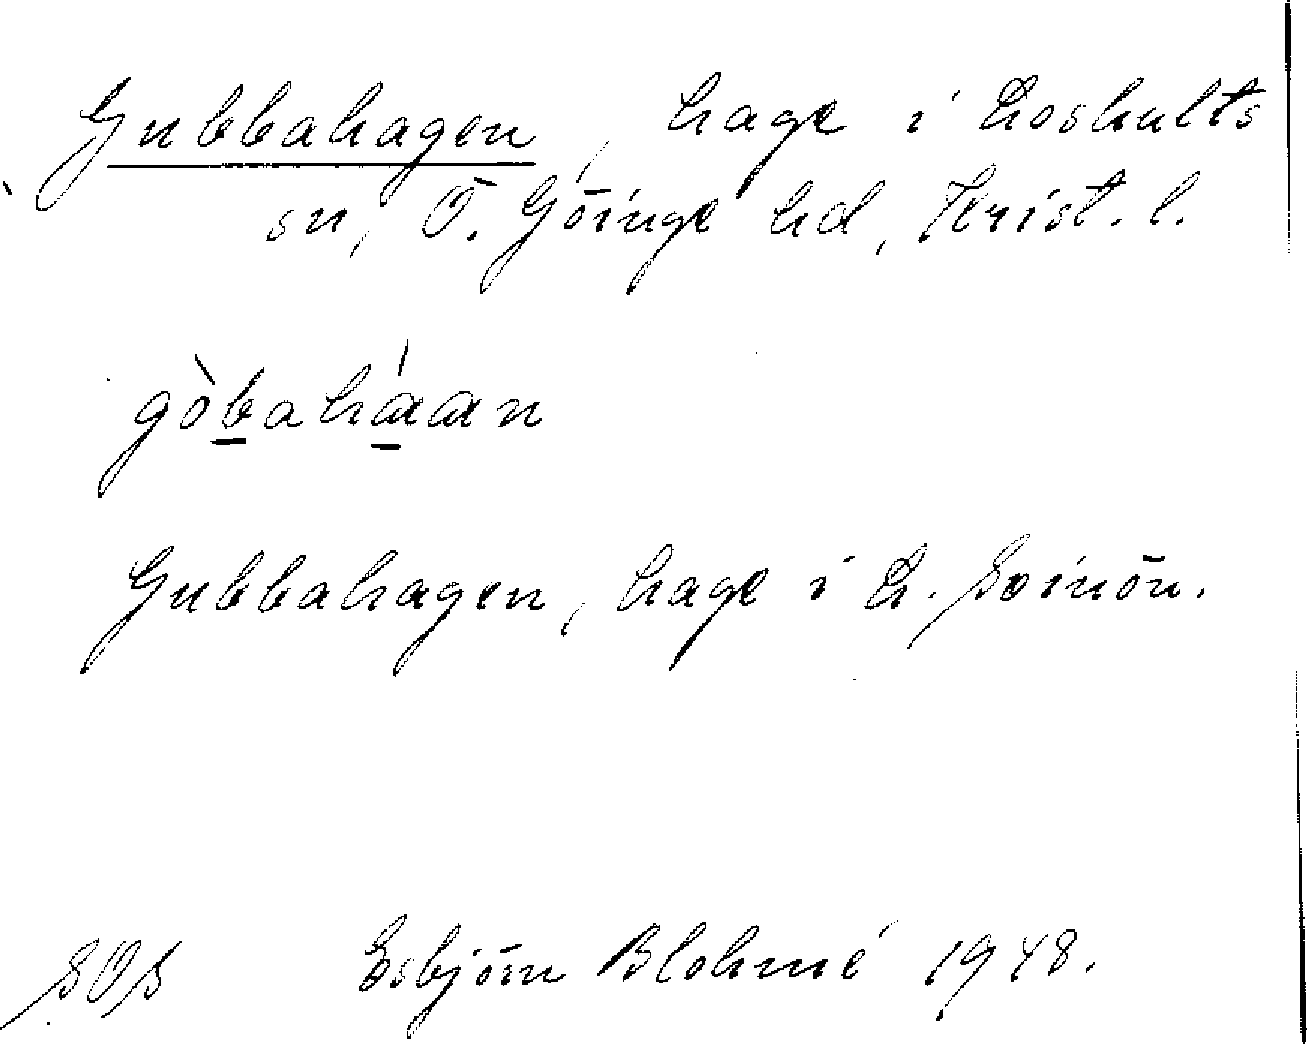 Gubbahagen, hage i Loshults
sn, Ö. Göinge hd, Krist. l.
gòbaháan
Gubbahagen, hage i L. Svinön.
SOS Esbjörn Blohmé 1948.